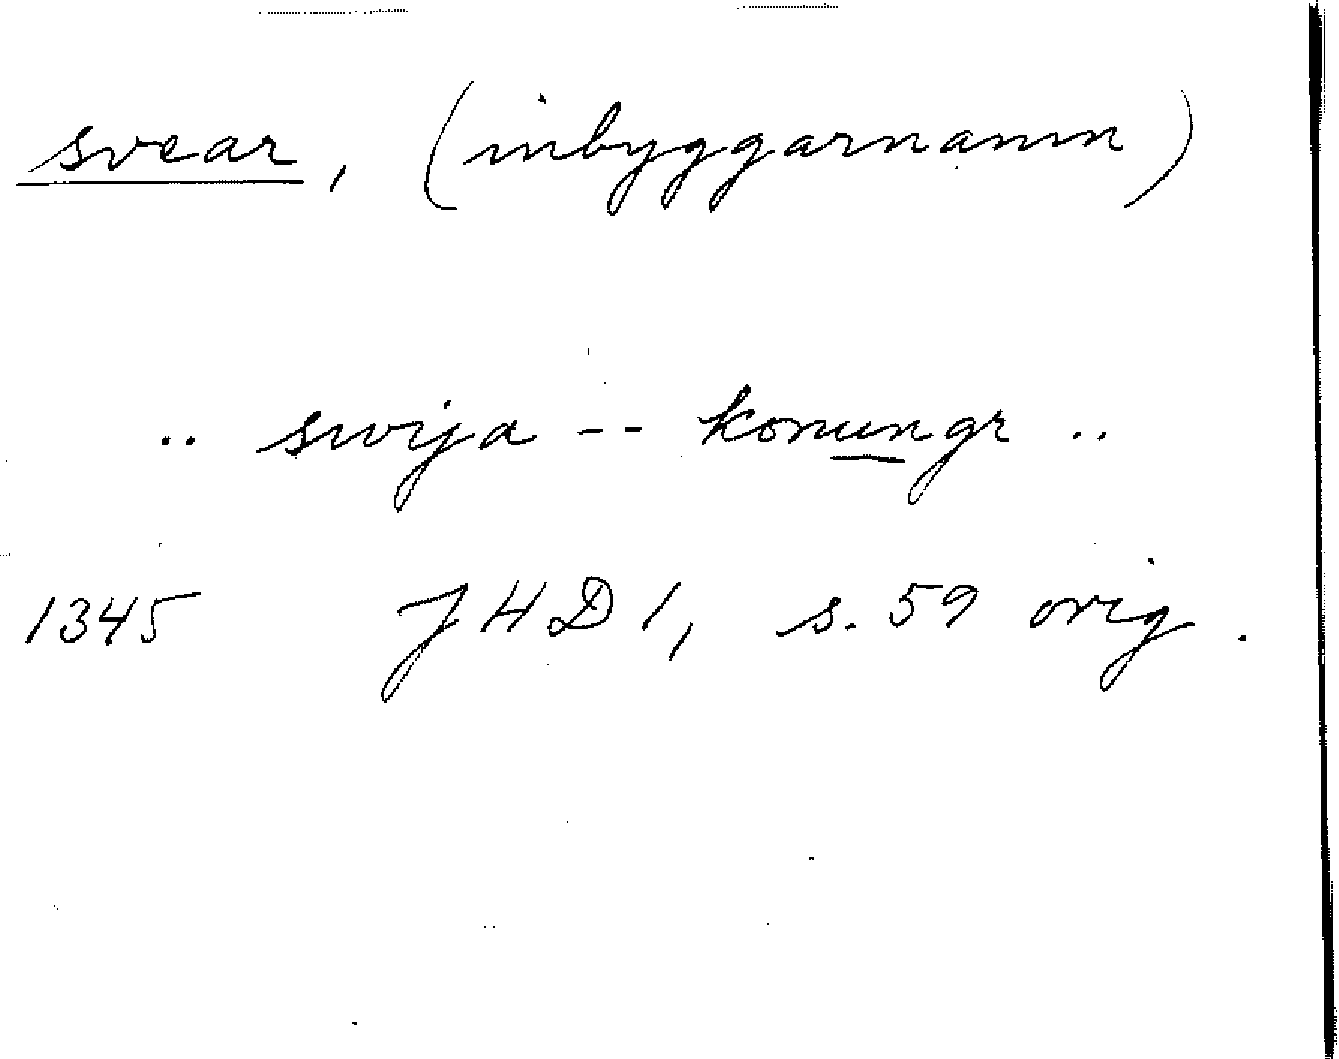 svear, (inbyggarnamn)
.. swija -- konungr ..
1345 JHD 1, s. 59 orig.